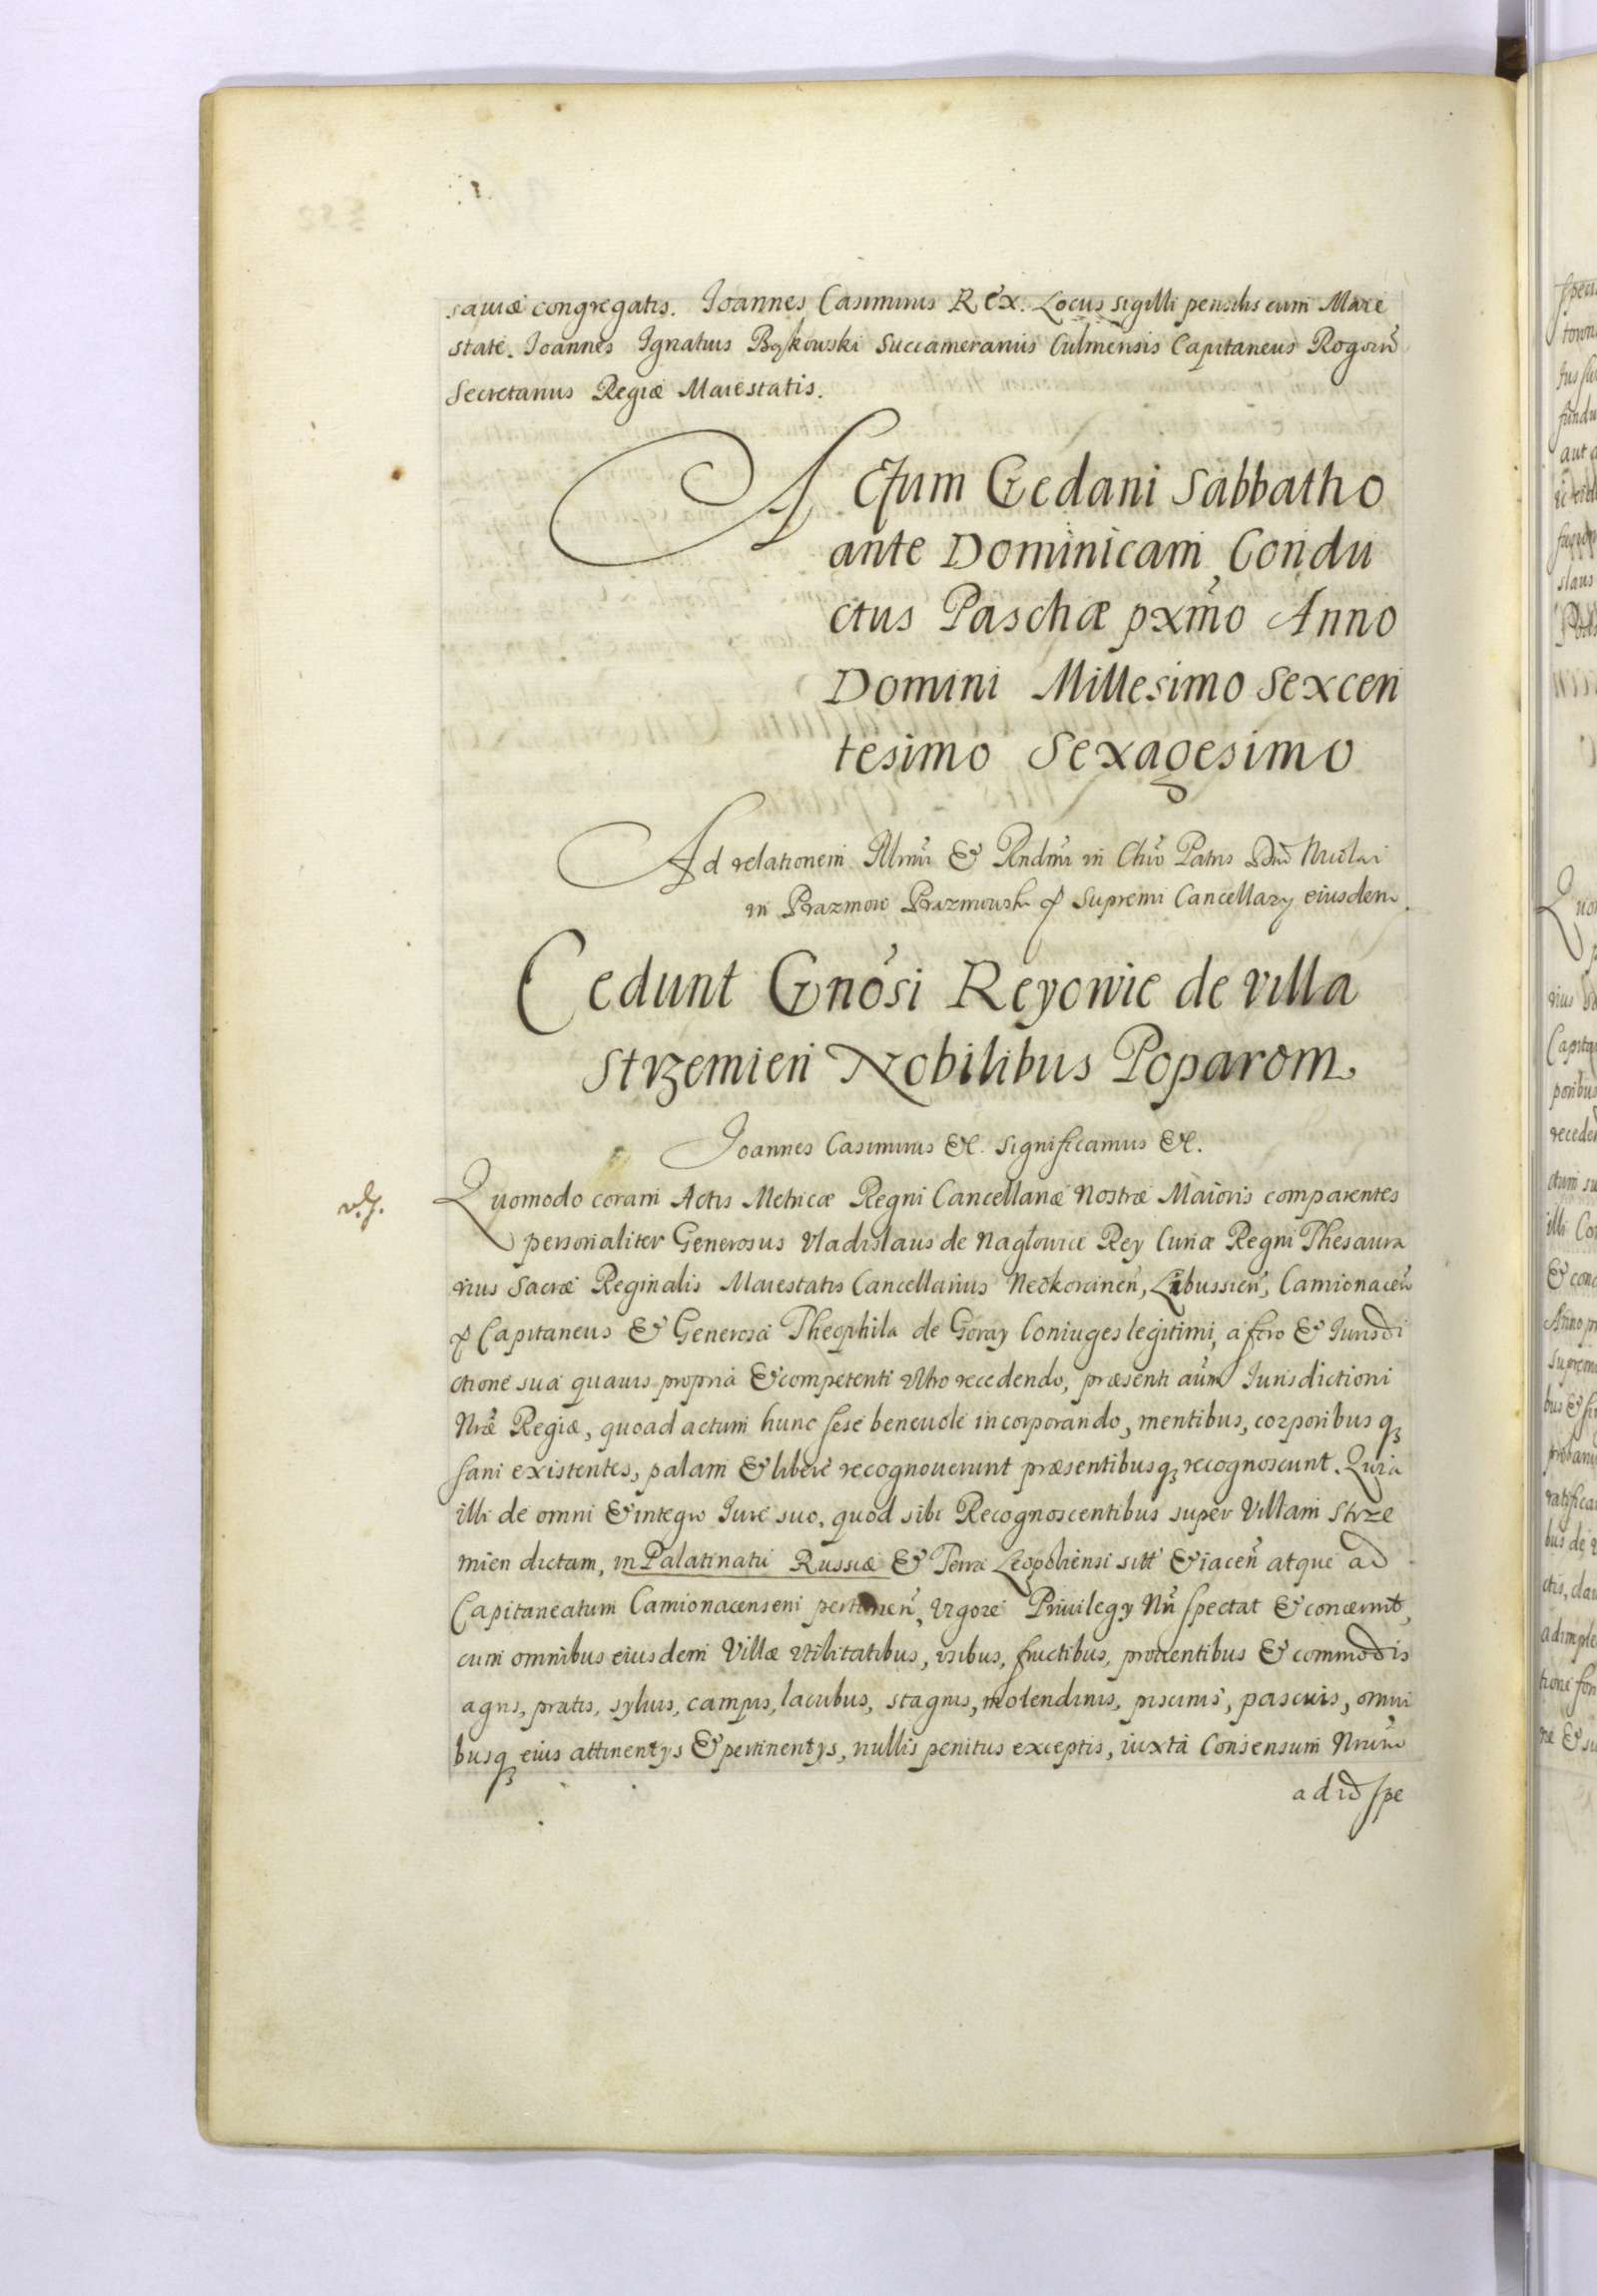 saviæ congregatis. Joannes Casimirus REX. Locus sigilli pensilis cum Maie
state. Joannes Ignatius Bąkowski Succamerarius Culmensis Capitaneus Rogozn̄
Secretarius Regiæ Maiestatis.
Actum Gedani Sabbatho
ante Dominicam Condu
ctus Paschæ pxm̄o Anno
Domini Millesimo Sexcen
tesimo Sexagesimo
Ad relationem Illmi & Rndmi in Chro Patris Dni Nicolai
in Prazmow Prazmowski Supremi Cancellarÿ eiusdem.
Cedunt Gnosi Reyowie de villa
Strzemien Nobilibus Poparom
Joannes Casimirus &c. significamus &c.
Quomodo coram Actis Metricæ Regni Cancellariæ Nostræ Maioris comparentes
personaliter Generosus Vladislaus de Nagłowice Rey Curiæ Regni Thesaura
rius Sacræ Reginalis Maiestatis Cancellarius Neokorcinen̄, Libussien̄, Camionacen̄
Capitaneus & Generosa Theophila de Goray Coniuges legitimi, a foro & Jurisdi
ctione sua quavis propria & competenti Ultro recedendo, præsenti aūm Jurisdictioni
Nræ Regiæ, quoad actum hunc sese benevole incorporando, mentibus, corporibus q3
sani existentes, palam & libere recognoverunt præsentibusq3 recognoscunt. Quia
illi de omni & integro Jure suo, quod sibi Recognoscentibus super Villam Strze
mien dictam, in Palatinatu Russiæ & Terra Leopoliensi sitt̄ & iacen̄ atque ad
Capitaneatum Camionacensem pertinen̄, Vigore Privilegÿ Nr̄i spectat & concernit,
cum omnibus eiusdem Villæ utilitatibus, usibus, fructibus, proventibus & commodis
agris, pratis, sylvis, campis, lacubus, stagnis, molendinis, piscinis, pascuis, omni
busq3 eius attinentÿs & pertinentÿs, nullis penitus exceptis, iuxta Consensum Nrum
ad id spe